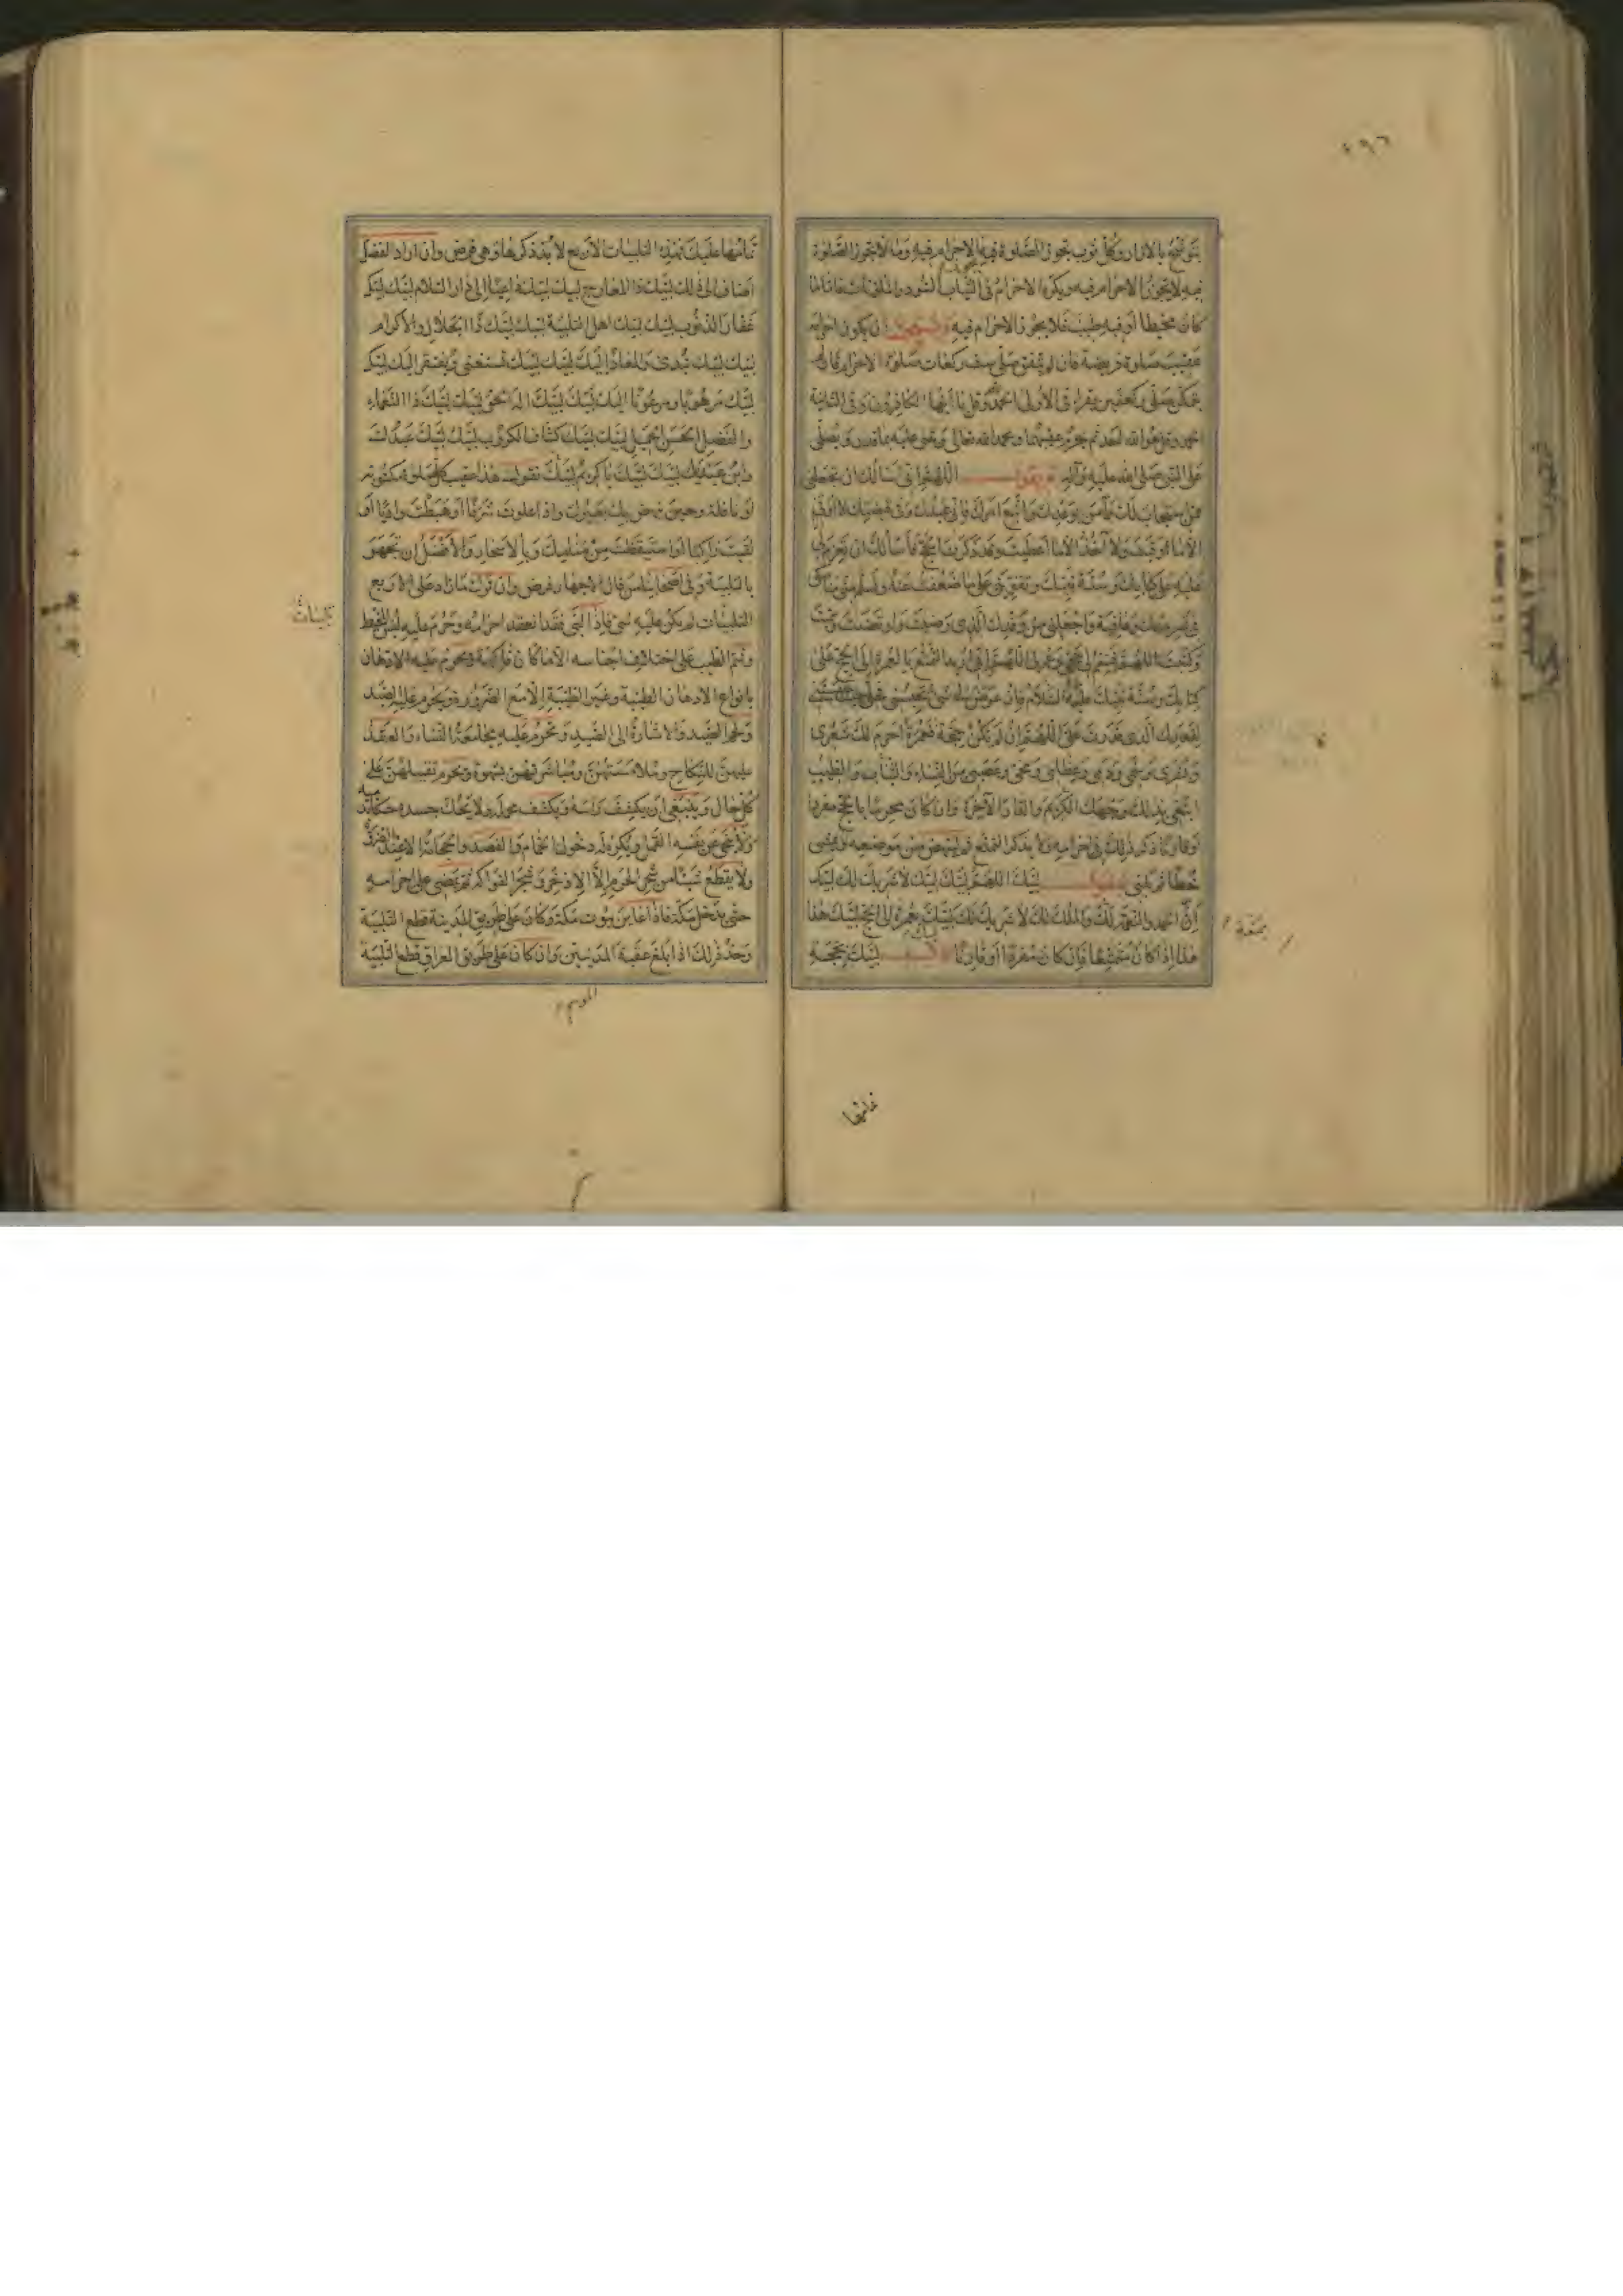 ٤٩٦
يتوشح بالازار وكل ثوب تجوز الصلوة فيه الاحرام فيه وما لا تجوز الصلوة
فيه لا يجوز الاحرام فيه ويكره الاحرام في الثياب السود والملونات فاما اذا
كان مخيطا او فيه طيب فلا يجوز الاحرام فيه ان يكون احرامه
عقيب صلوة فريضة فان لم يتفق صلى ست ركعات صلوة الاحرام فان لم
يتمكن صلى ركعتين يقرا في الاولى الحمد وقل يا ايها الكافرون وفي الثانية
الحمد وقل هو الله احد ثم يحرم عقيبهما ويحمد الله تعالى ويثنى عليه بما قدر ويصلي
على النبي صلى الله عليه وآله ويقول اللهم اني اسألك ان تجعلني
ممن استجاب لك وآمن بوعدك واتبع امرك فاني عبدك وفي قبضتك لا اوقى
الا ما اوقيت ولا آخذ الا ما اعطيت وقد ذكرت الحج فاسألك ان تعزم لي
عليه على كتابك وسنة نبيك وتقويني على ما ضعفت عنه وتسلم مني مناسكي
في يسر منك وعافية واجعلني من وفدك الذي رضيت وارتضيت وسميت
وكتبت اللهم فتمم لي حجتي وعمرتي اللهم اني اريد التمتع بالعمرة الى الحج على
كتابك وسنة نبيك عليه السلام فان عرض لي شيء يحبسني فحلني حيث حبستني
لقدرك الذي قدرت علي اللهم ان لم تكن حجة فعمرة احرم لك شعري
وبشري ولحمي ودمي وعظامي ومخي وعصبي من النساء والثياب والطيب
ابتغي بذلك وجهك الكريم والدار الآخرة وان كان محرما بالحج مفردا
او قارنا ذكر ذلك في احرامه ولا يذكر التمتع ثم لينهض من موضعه ويمشي
خطا ثم يلبي لبيك اللهم لبيك لبيك لا شريك لك لبيك
ان الحمد والنعمة لك والملك لك لا شريك لك لبيك بعمرة الى الحج لبيك هذا
هذا اذا كان متمتعا فان كان مفردا او قارنا لبيك بحجة
بمتعة
تمامها عليك فهذه التلبيات الاربع لا بد من ذكرها وهي فرض وان اراد الفضل
اضاف الى ذلك لبيك ذا المعارج لبيك لبيك داعيا الى دار السلام لبيك لبيك
غفار الذنوب لبيك لبيك اهل التلبية لبيك لبيك ذا الجلال والاكرام
لبيك لبيك تبدئ والمعاد اليك لبيك لبيك تستغني ويفتقر اليك لبيك
لبيك مرهوبا ومرغوبا اليك لبيك لبيك اله الحق لبيك لبيك ذا النعماء
والفضل الحسن الجميل لبيك لبيك كشاف الكروب لبيك لبيك عبدك
وابن عبديك لبيك لبيك يا كريم لبيك تقول هذا عقيب كل صلوة مكتوبة
او نافلة وحين ينهض بك بعيرك واذا علوت شرفا او هبطت واديا او
لقيت راكبا او استيقظت من منامك وبالاسحار والافضل ان تجهر
بالتلبية وفي اصحابنا من قال الاجهار فرض وان تركت ما زاد على الاربع
التلبيات لم يكن عليه شيء فاذا لبى فقد انعقد احرامه وحرم عليه لبس المخيط
وشم الطيب على اختلاف اجناسه الا ما كان فاكهة ويحرم عليه الادهان
بانواع الادهان الطيبة وغير الطيبة الا مع الضرورة ويحرم عليه الصيد
ولحم الصيد والاشارة الى الصيد وتحرم عليه مجامعة النساء والعقد
عليهن للنكاح وملامستهن ومباشرتهن بشهوة ويحرم تقبيلهن على
كل حال وينبغي ان يكشف راسه ويكشف محمله ولا يحك جسده حكا يدميه
ولا ينحي عن نفسه القمل ويكره له دخول الحمام والفصد والحجامة الا عند الضرورة
ولا يقطع نبتا من شجر الحرم الا الاذخر وشجر الفواكه ثم يمضي على احرامه
حتى يدخل مكة فاذا عاين بيوت مكة وكان على طريق المدينة قطع التلبية
وحد ذلك اذا بلغ عقبة المدنيين وان كان على طريق العراق قطع التلبية